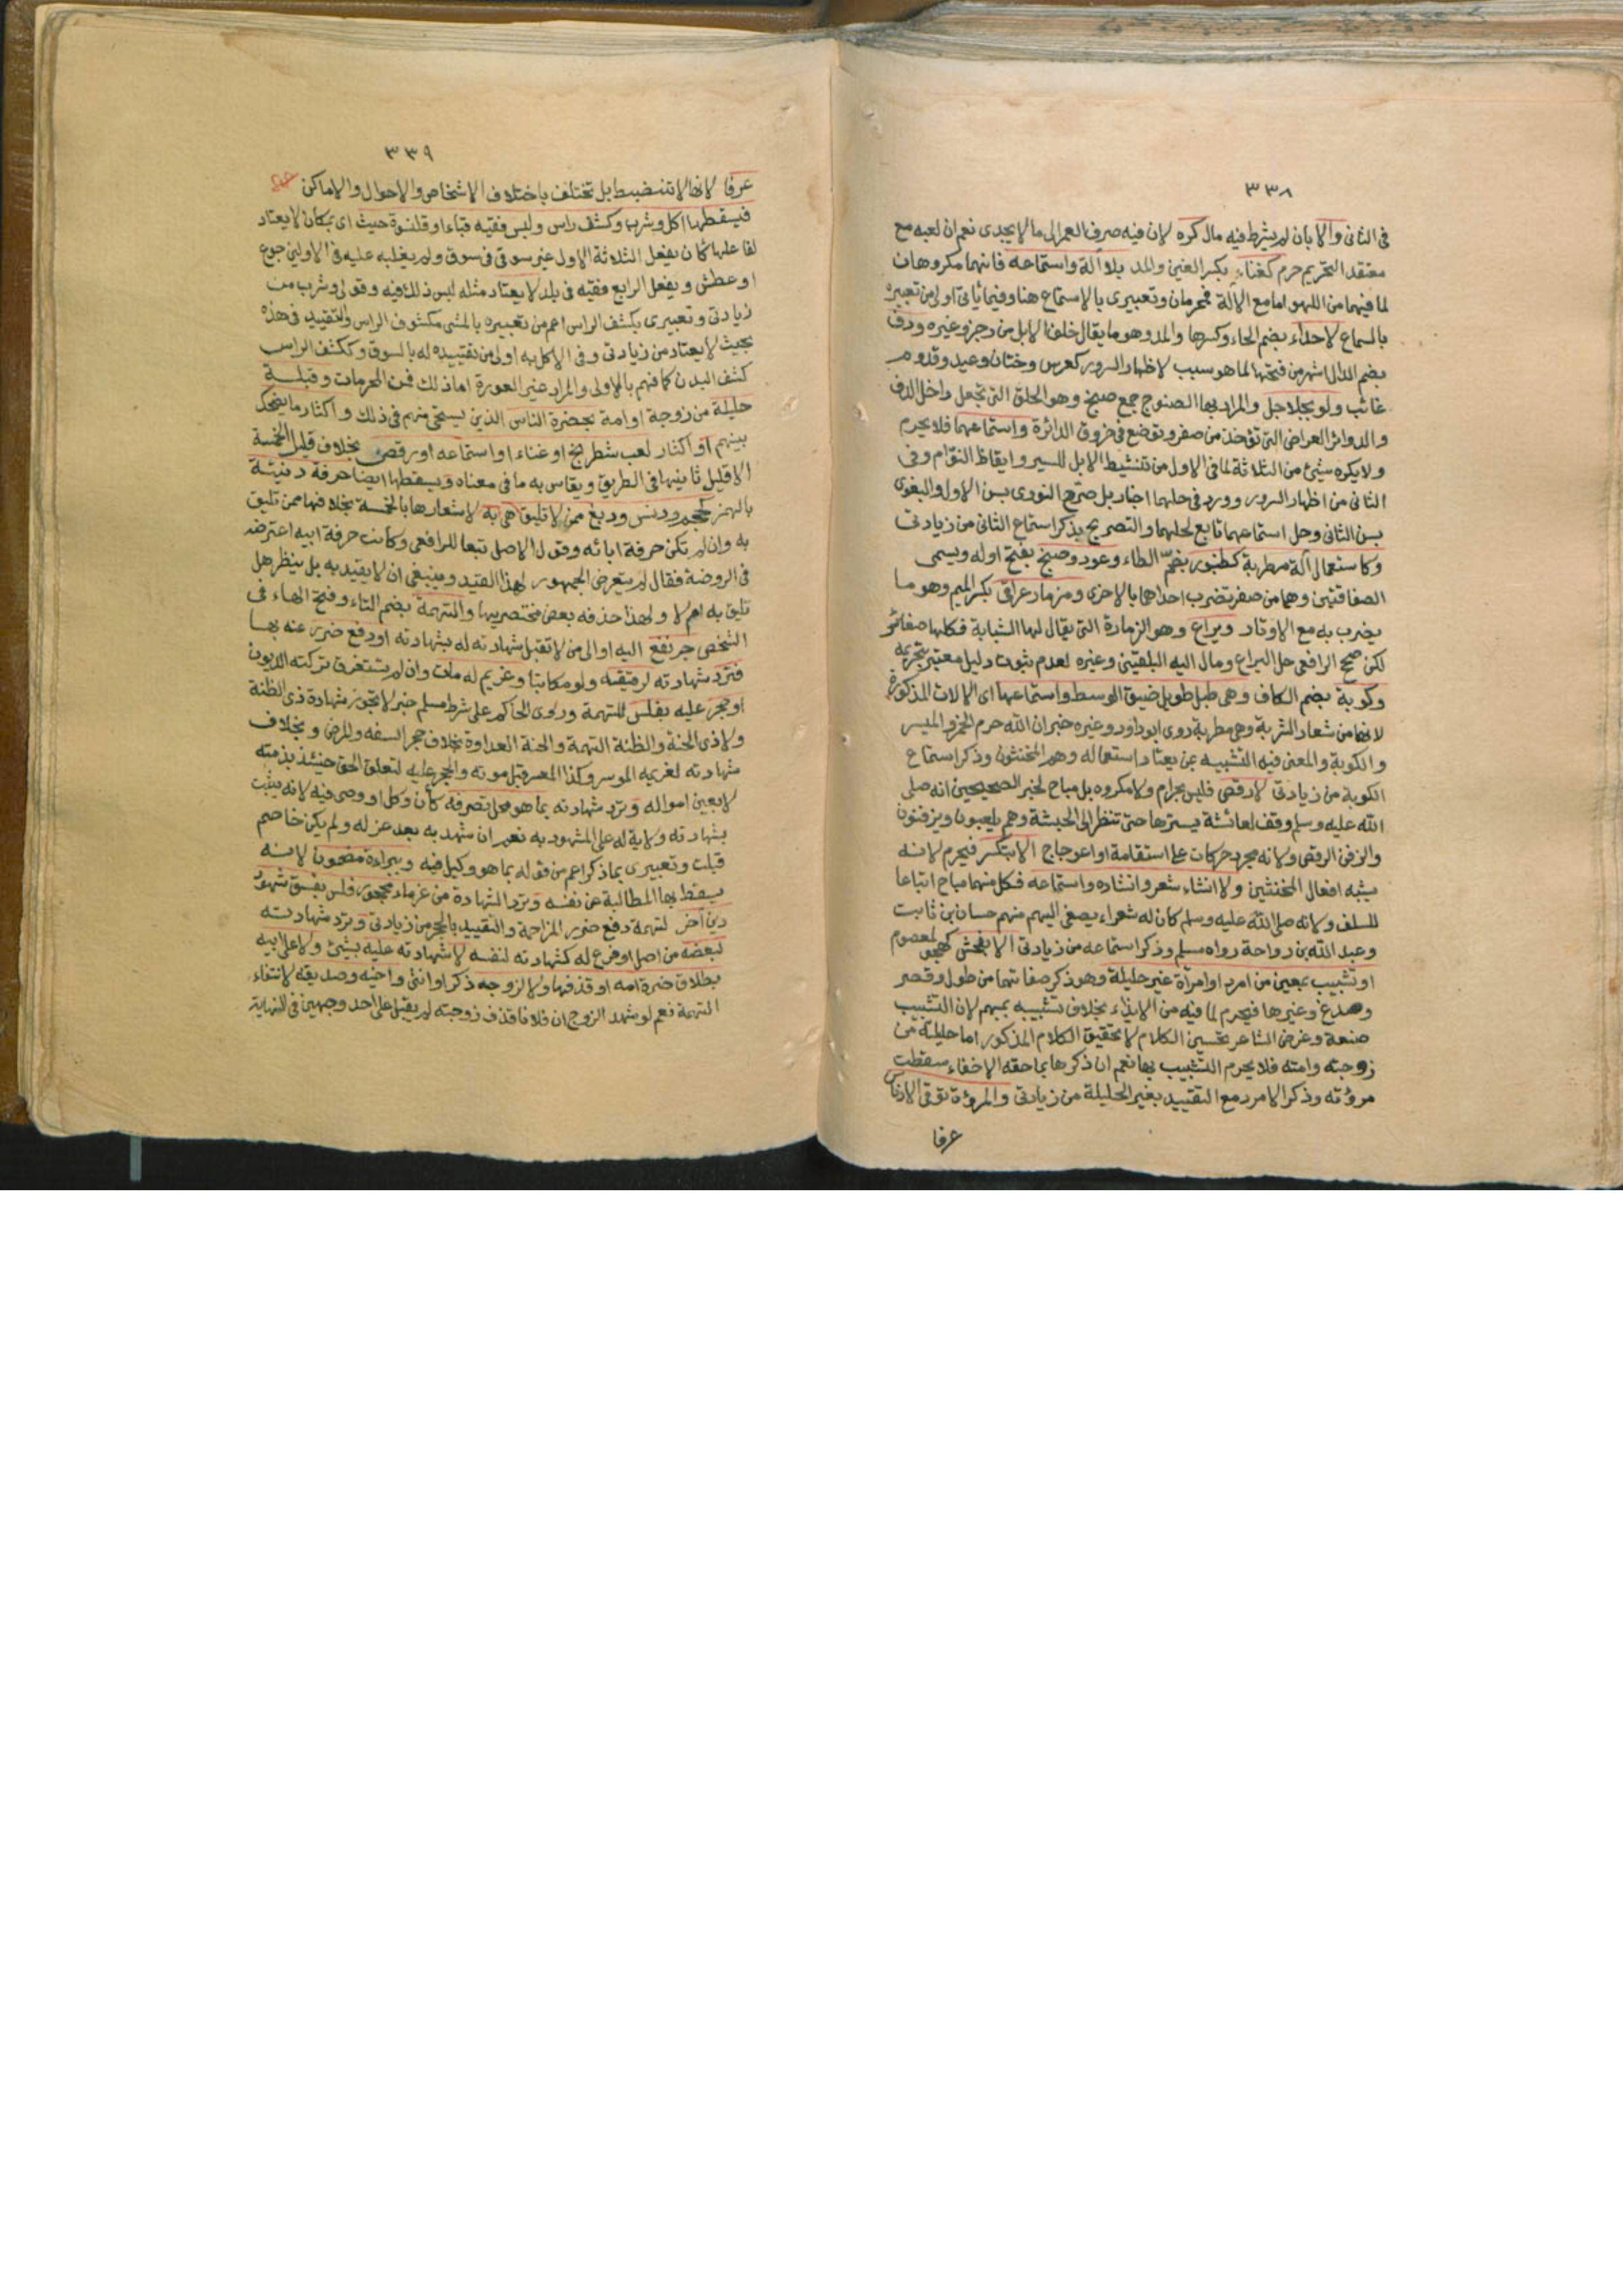 ٣٣٨
في الثاني والا بان لم يشرط فيه مال كره لان فيه صرف العمر الى ما لا يجدى نعم ان لعبه مع
معتقد التحريم حرم كغناء بكسر الغين والمد بلا آلة واستماعه فانهما مكروهان
لما فيهما من اللهو اما مع الالة فمحرمان وتعبيرى بالاستماع هنا وفيما ياتى اولى من تعبيره
بالسماع لا حداء بضم الحاء وكسرها والمد وهو ما يقال خلف الابل من رجز وغيره ودف
بضم الدال اشهر من فتحها لما هو سبب لاظهار السرور كعرس وختان وعيد وقدوم
غائب ولو بجلاجل والمراد بها الصنوج جمع صنج وهو الحلق التى تجعل داخل الدف
والدوائر العراض التى تؤخذ من صفر وتوضع فى خروق الدائرة واستماعهما فلا يحرم
ولا يكره شيئ من الثلاثة لما فى الاول من تنشيط الابل للسير وايقاظ النوام وفى
الثانى من اظهار السرور وورد فى حلهما اخبار بل صرّح النووى بسن الاول والبغوى
بسن الثانى وحل استماعهما تابع لحلهما والتصريح بذكر استماع الثانى من زيادتى
وكاستعمال آلة مطربة كطنبور بضمّ الطاء وعود وصنج بفتح اوله ويسمى
الصفاقتين وهما من صفر تضرب احداهما بالاخرى ومزمار عراقى بكسر الميم وهو ما
يضرب به مع الاوتار ويراع وهو الزمارة التى يقال لها الشبابة فكلها صغائر
لكن صحح الرافعى حل اليراع ومال اليه البلقينى وغيره لعدم ثبوت دليل معتبر بتحريمه
وكوبة بضم الكاف وهى طبل طويل ضيق الوسط واستماعها اى الالات المذكورة
لانها من شعار الشربة وهى مطربة روى ابو داود وغيره خبر ان الله حرم الخمر والميسر
والكوبة والمعنى فيه التشبيه بمن يعتاد استعماله وهم المخنثون وذكر استماع
الكوبة من زيادتى لا رقص فليس بحرام ولا مكروه بل مباح لخبر الصحيحين انه صلى
الله عليه وسلم وقف لعائشة يسترها حتى تنظر الى الحبشة وهم يلعبون ويزفنون
والزفن الرقص ولانه مجرد حركات على استقامة او اعوجاج الا بتكسر فيحرم لانه
يشبه افعال المخنثين ولا انشاء شعر وانشاده واستماعه فكل منهما مباح اتباعا
للسلف ولانه صلى الله عليه وسلم كان له شعراء يصغى اليهم منهم حسان بن ثابت
وعبد الله بن رواحة رواه مسلم وذكر استماعه من زيادتى الا بفحش كهجو لمعصوم
او تشبيب بمعين من امرد او امرأة غير حليلة وهو ذكر صفاتهما من طول وقصر
وصدغ وغيرها فيحرم لما فيه من الايذاء بخلاف تشبيبه بمبهم لان التشبيب
صنعة وغرض الشاعر تحسين الكلام لا تحقيق الكلام المذكور اما حليلته من
زوجته وامته فلا يحرم التشبيب بها نعم ان ذكرها بما حقه الاخفاء سقطت
مروءته وذكر الامرد مع التقييد بغير الحليلة من زيادتى والمروءة توقى الادناس
عرفا
٣٣٩
عرفا لانها لا تنضبط بل تختلف باختلاف الاشخاص والاحوال والاماكن
فيسقطها اكل وشرب وكشف راس ولبس فقيه قباء او قلنسوة حيث اى بمكان لا يعتاد
لفاعلها كان يفعل الثلاثة الاول غير سوقى فى سوق ولم يغلبه عليه فى الاولين جوع
او عطش ويفعل الرابع فقيه فى بلد لا يعتاد مثله لبس ذلك فيه وقولى وشرب من
زيادتى وتعبيرى بكشف الراس اعم من تعبيره بالمشى مكشوف الراس والتقييد فى هذه
بحيث لا يعتاد من زيادتى وفى الاكل به اولى من تقييده له بالسوق وككشف الراس
كشف البدن كما فهم بالاولى والمراد غير العورة اما ذلك فمن المحرمات وقبلة
حليلة من زوجة او امة بحضرة الناس الذين يستحى منهم فى ذلك واكثار ما يضحك
بينهم او اكثار لعب شطرنج او غناء او استماعه او رقص بخلاف قليل الخمسة
الا قليل ثانيها فى الطريق ويقاس به ما فى معناه ويسقطها ايضا حرفة دنيئة
بالهمز كحجم وكنس ودبغ ممن لا تليق هى به لاشعارها بالخسة بخلافها ممن تليق
به وان لم تكن حرفة ابائه وقول الاصل تبعا للرافعى وكانت حرفة ابيه اعترضه
فى الروضة فقال لم يتعرض الجمهور لهذا القيد وينبغى ان لا يقيد به بل ينظر هل
تليق به ام لا ولهذا حذفه بعض مختصريها والتهمة بضم التاء وفتح الهاء فى
الشخص جر نفع اليه او الى من لا تقبل شهادته له بشهادته او دفع ضرر عنه بها
فترد شهادته لرقيقه ولو مكاتبا وغريم له مات وان لم يستغرق تركته الديون
او حجر عليه بفلس للتهمة وروى الحاكم على شرط مسلم خبر لا تجوز شهادة ذى الظنة
ولا ذى الحنة والظنة التهمة والحنة العداوة بخلاف حجر السفه والمرض وبخلاف
شهادته لغريمه الموسر وكذا المعسر قبل موته والحجر عليه لتعلق الحق حينئذ بذمته
لا بعين امواله وترد شهادته بما هو محل تصرفه كان وكل او وصى فيه لانه يثبت
بشهادته ولاية له على المشهود به نعم ان شهد به بعد عزله ولم يكن خاصم
قبلت وتعبيرى بما ذكر اعم من قوله بما هو وكيل فيه وببراءة مضمونه لانه
يسقط بها المطالبة عن نفسه وترد الشهادة من غرماء محجور فلس بفسق شهود
دين آخر لتهمة دفع ضرر المزاحمة والتقييد بالحجر من زيادتى وترد شهادته
لبعضه من اصل او فرع له كشهادته لنفسه لا شهادته عليه بشيئ ولا على ابيه
بطلاق ضرة امه او قذفها ولا لزوجه ذكرا او انثى واخيه وصديقه لانتفاء
التهمة نعم لو شهد الزوج ان فلانا قذف زوجته لم يقبل على احد وجهين فى النهاية